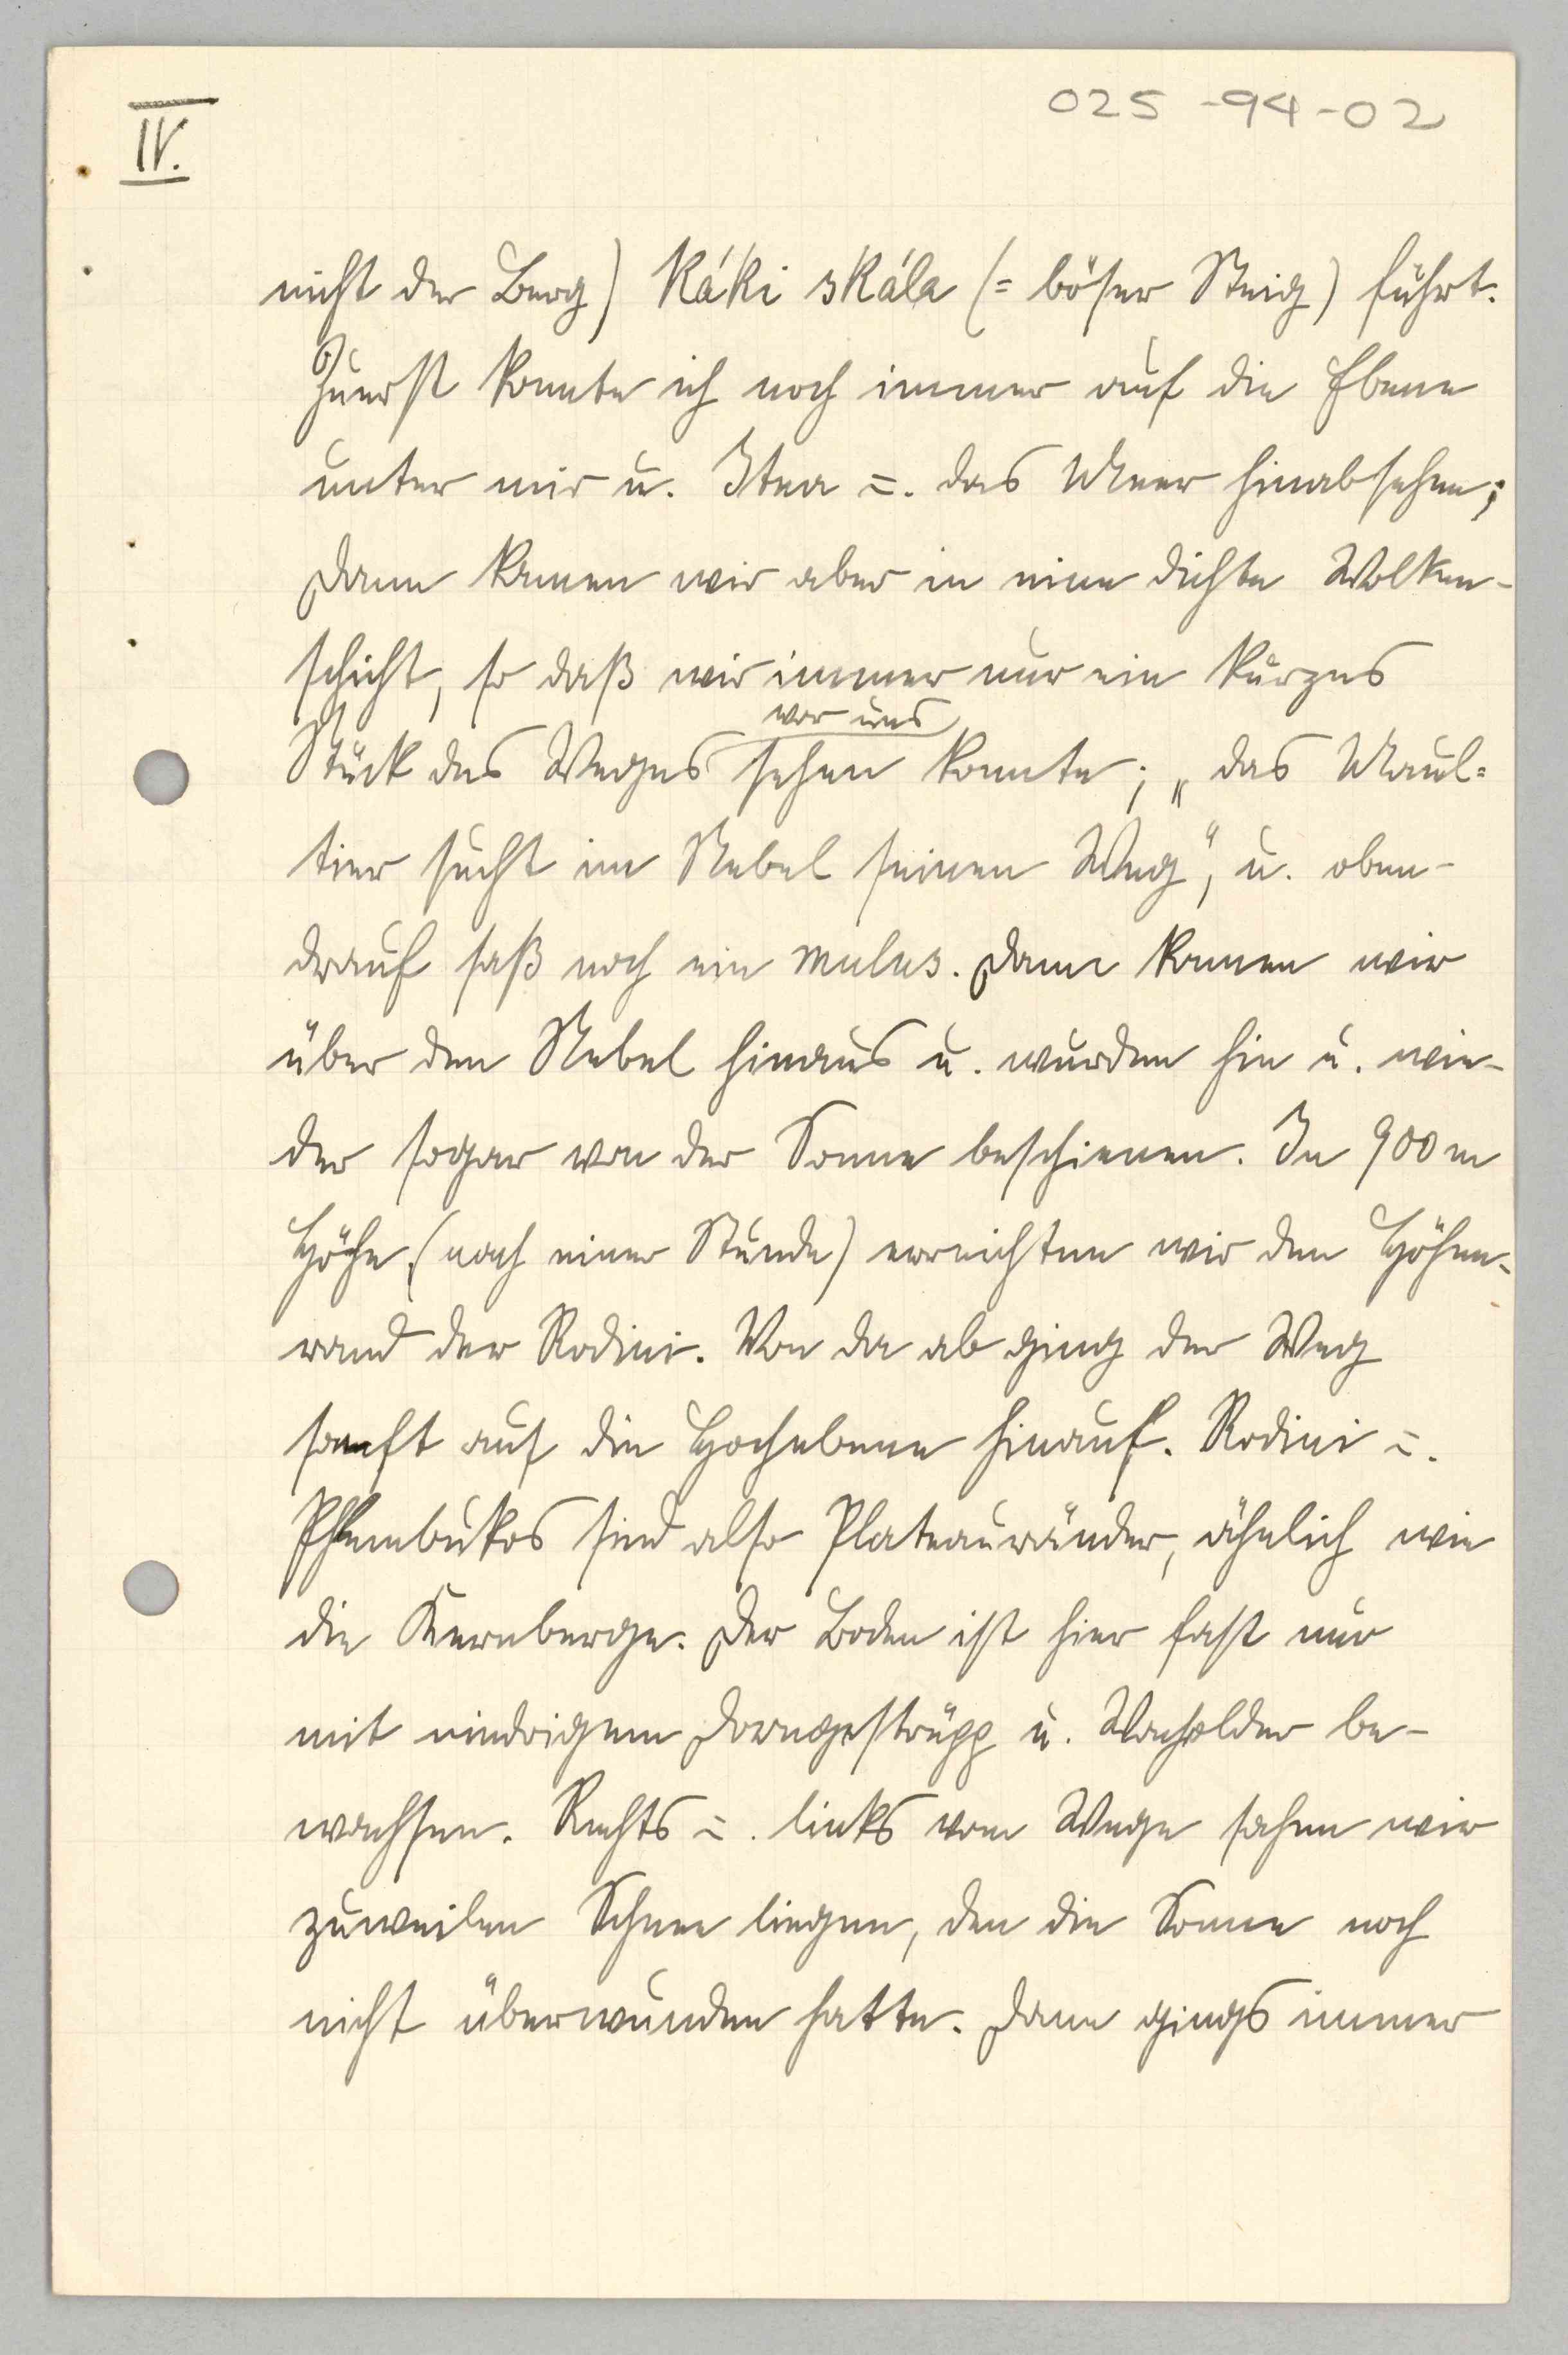 025-94-02
IV.
nicht der Berg) Káki skála (= böser Steig) führt.
Zuerst konnte ich noch immer auf die Ebene
unter mir u. Itea u. das Meer hinabsehen;
dann kamen wir aber in eine dichte Wolken-
schicht, so daß wir immer nur ein kurzes
vor uns
Stück des Weges sehen konnte; „das Maul-
tier sucht im Nebel seinen Weg“, u. oben-
drauf saß noch ein mulus. Dann kamen wir
über den Nebel hinaus u. wurden hin u. wie-
der sogar von der Sonne beschienen. In 900 m
Höhe (nach einer Stunde) erreichten wir den Höhen-
rand der Rodini. Von da ab ging der Weg
sanft auf die Hochebene hinauf. Rodini u.
Phlembukos sind also Plateauränder, ähnlich wie
die Kernberge. Der Boden ist hier fast nur
mit niedrigem Dorngestrüpp u. Wacholder be-
wachsen. Rechts u. links vom Wege sahen wir
zuweilen Schnee liegen, den die Sonne noch
nicht überwunden hatte. Dann gings immer